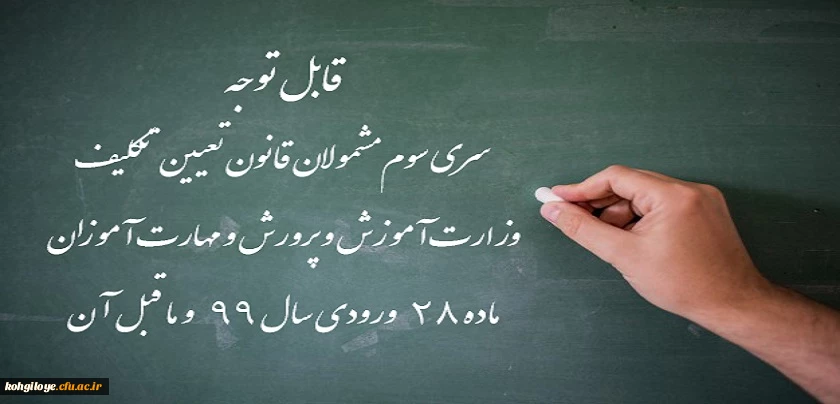 قابل توجه
سری سوم مشمولان قانون تعیین تکلیف
وزارت آموزش و پرورش و مهارت آموزان
ماده ۲۸ ورودی سال ۹۹ و ماقبل آن
kohgiloye.cfu.ac.ir